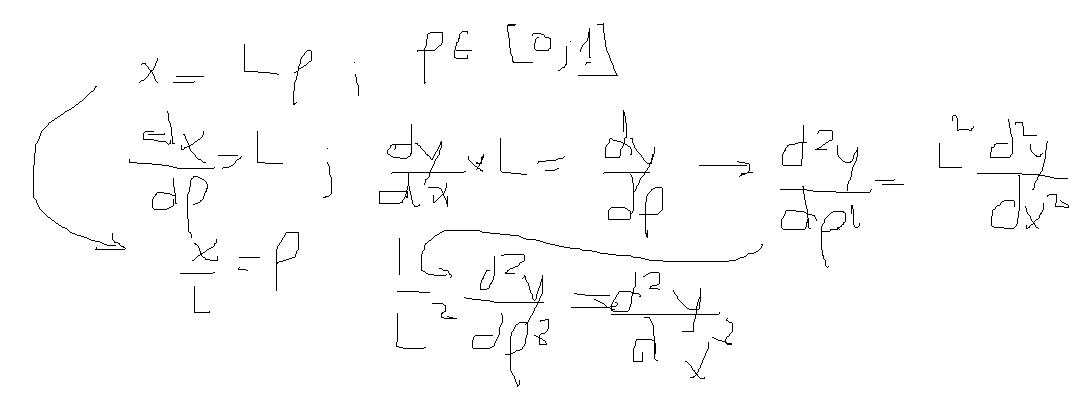 x = Lρ ; ρ∈ [0;1]
dx/dρ = L ; dy/dx × L = dy/dρ → d²y/dρ² = L² d²y/dx²
x/L = ρ 1/L² d²y/dρ² = d²y/dx²